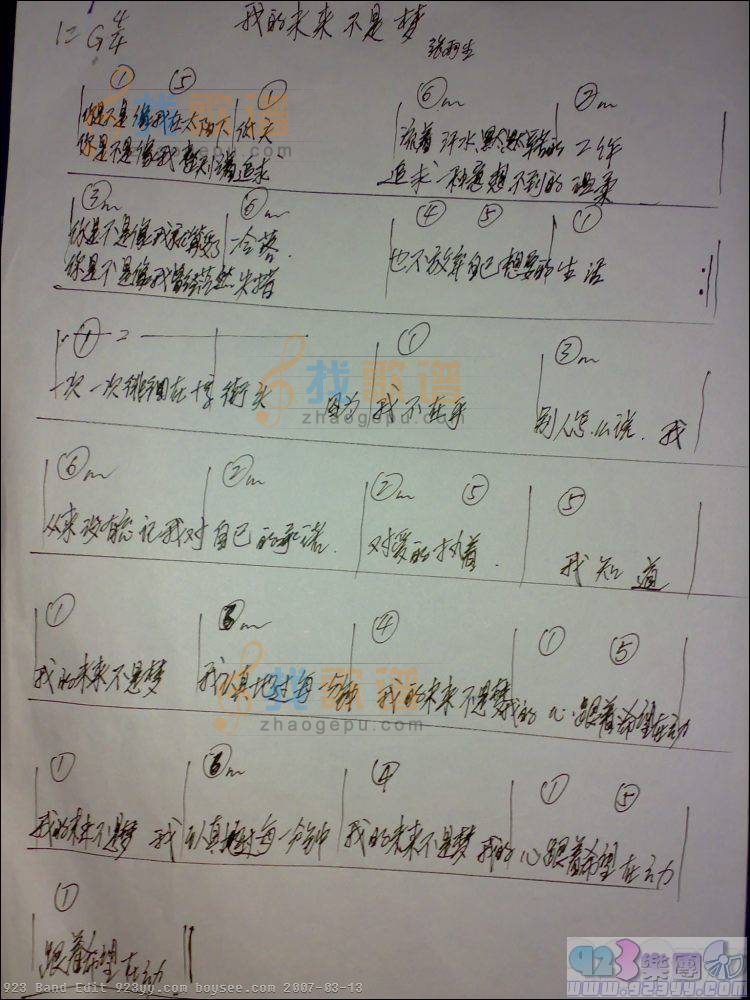 我的未来不是梦
1=G 4/4
张雨生
① ⑤ ① ⑥m ②m
你是不是像我在太阳下低头 流着汗水默默辛苦的工作
你是不是像我整天忙着追求 追求一种意想不到的温柔
③m ⑥m ④ ⑤ ①
你是不是像我就算受了冷落 也不放弃自己想要的生活
你是不是像我曾经茫然失措
① 2 ① ③m
一次一次徘徊在十字街头 因为我不在乎 别人怎么说 我
⑥m ②m ②m ⑤ ⑤
从来没有忘记我对自己的承诺 对爱的执着 我知道
① ⑥m ④ ① ⑤
我的未来不是梦 我认真地过每一分钟 我的未来不是梦 我的心跟着希望在动
① ⑥m ④ ① ⑤
我的未来不是梦 我认真地过每一分钟 我的未来不是梦 我的心跟着希望在动
①
跟着希望在动
找歌谱
zhaogepu.com
找歌谱
zhaogepu.com
找歌谱
zhaogepu.com
923 Band Edit 923yy.com boysee.com 2007-03-13
923樂團
www.923yy.com